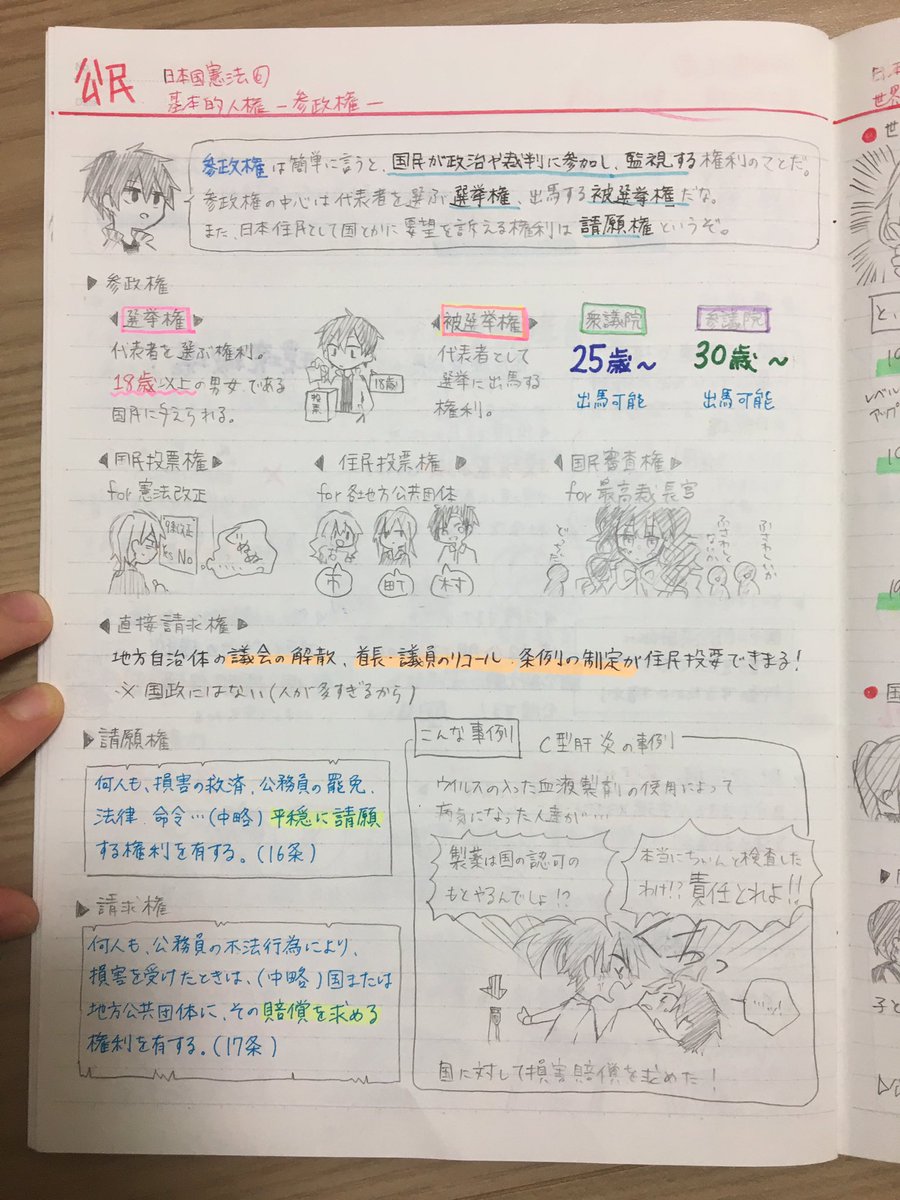 公民
日本国憲法⑥
基本的人権 ー参政権ー
参政権は簡単に言うと、国民が政治や裁判に参加し、監視する権利のことだ。
参政権の中心は代表者を選ぶ選挙権、出馬する被選挙権だな。
また、日本住民として国とかに要望を訴える権利は請願権というぞ。
▶参政権
選挙権
代表者を選ぶ権利。
18歳以上の男女である
国民に与えられる。
投票
18歳!
被選挙権
代表者として
選挙に出馬する
権利。
衆議院
25歳〜
出馬可能
参議院
30歳〜
出馬可能
国民投票権
for 憲法改正
No
住民投票権
for 各地方公共団体
市
町
村
国民審査権
for 最高裁長官
ふさわしく
ないか
ふさわしいか
直接請求権
地方自治体の議会の解散、首長・議員のリコール・条例の制定が住民投票できまる!
※国政にはない(人が多すぎるから)
▶請願権
何人も、損害の救済、公務員の罷免、
法律、命令…(中略)平穏に請願
する権利を有する。(16条)
▶請求権
何人も、公務員の不法行為により、
損害を受けたときは、(中略)国または
地方公共団体に、その賠償を求める
権利を有する。(17条)
こんな事例
C型肝炎の事例
ウイルスの入った血液製剤の使用によって
病気になった人達が…
製薬は国の認可の
もとやるんでしょ!?
本当にちゃんと検査した
わけ!?責任とれよ!!
国に対して損害賠償を求めた!